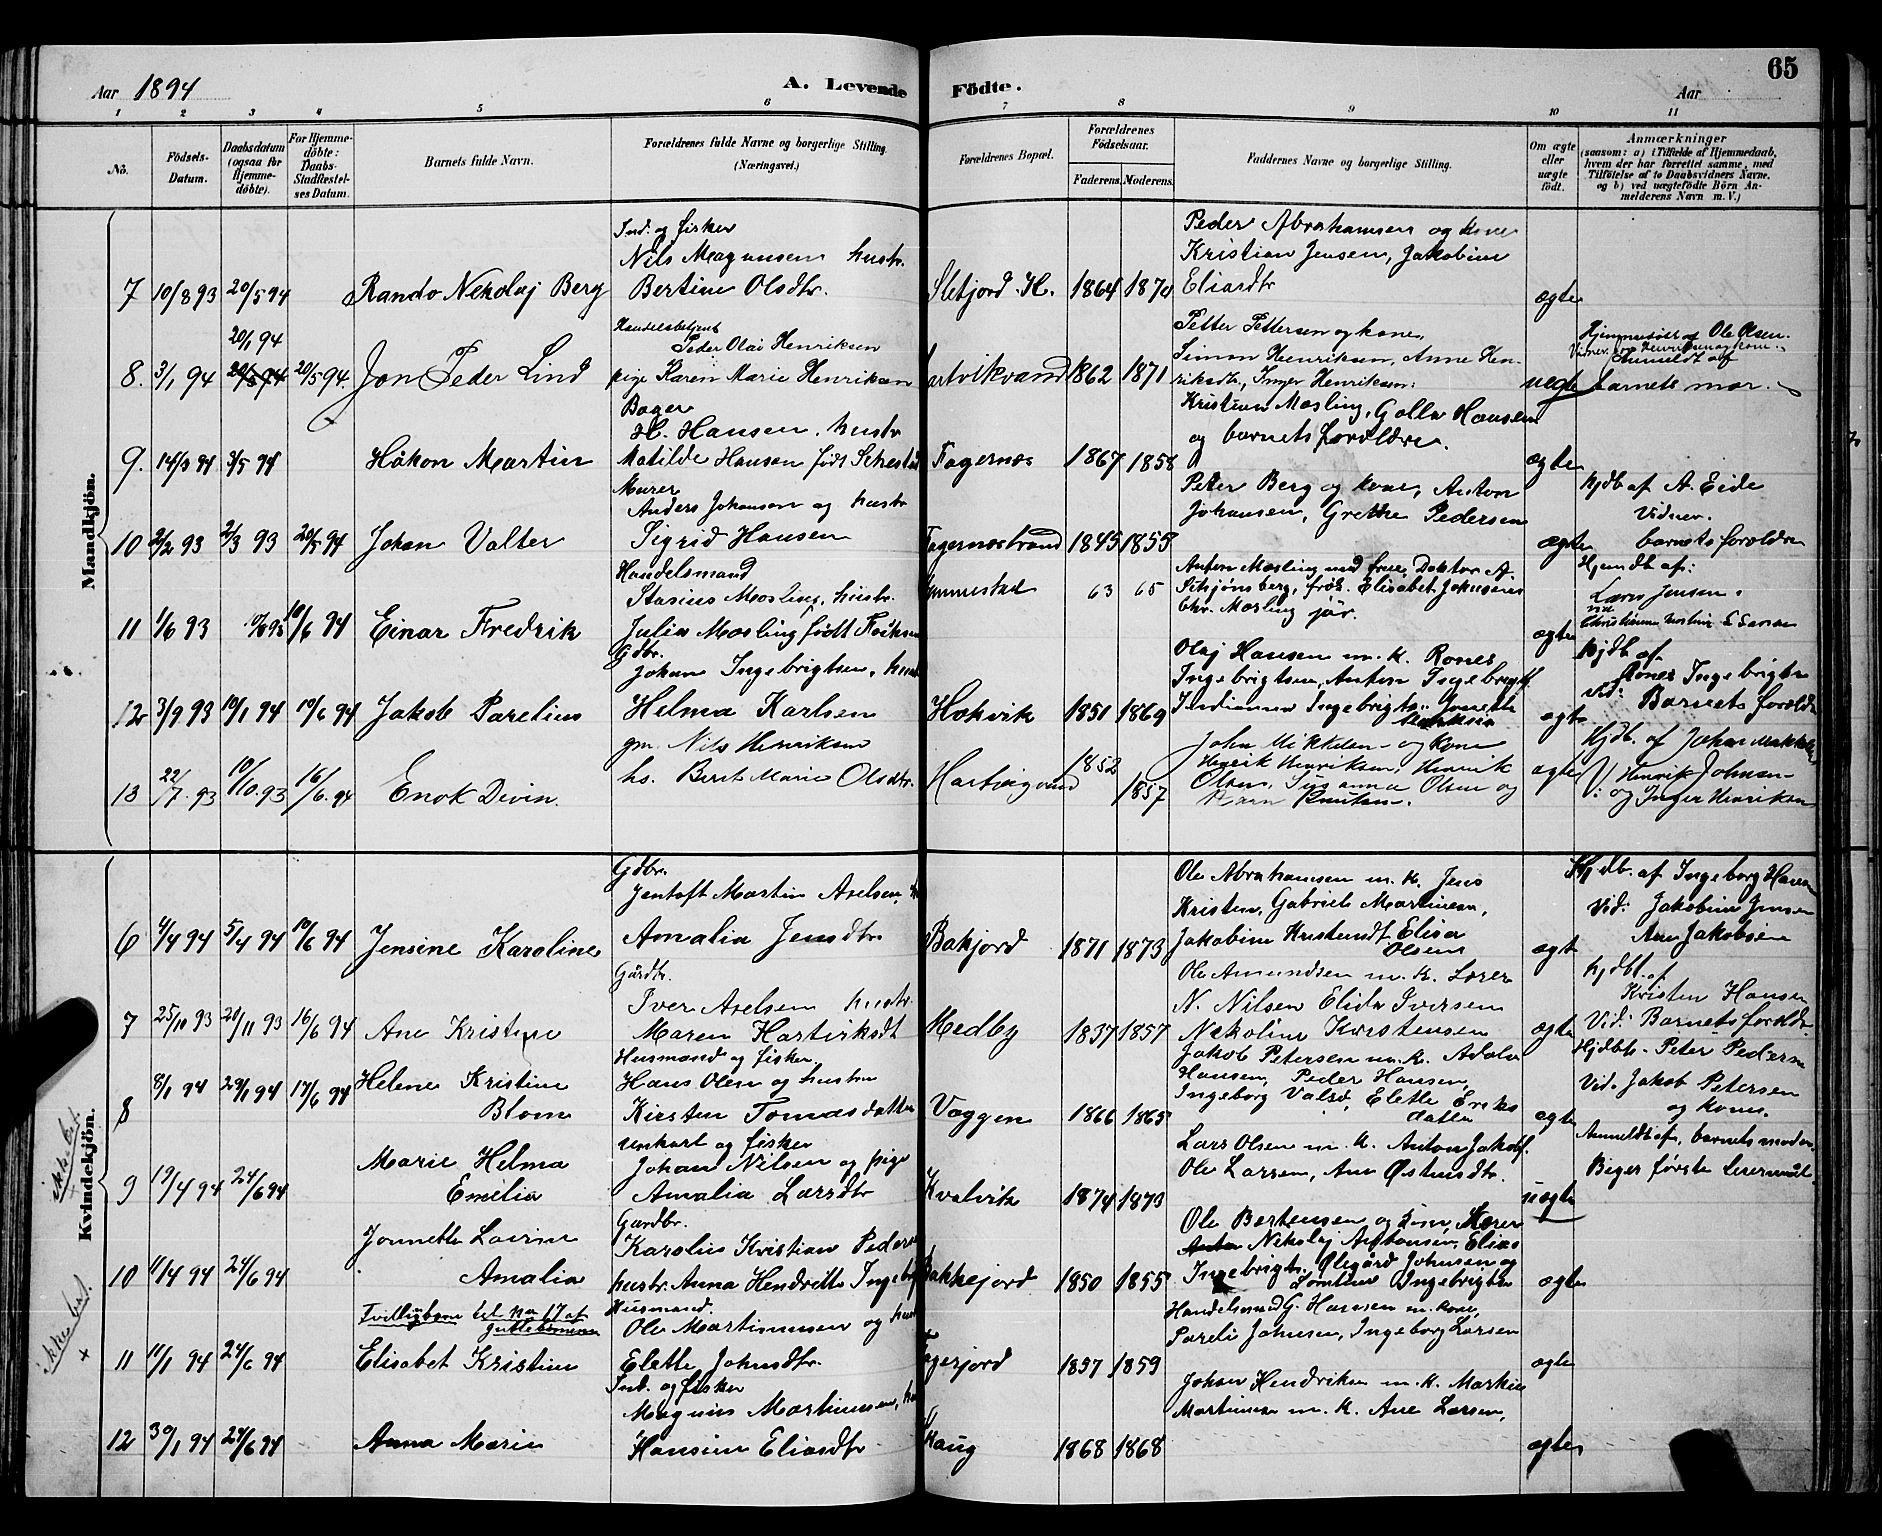 65
Aar 1894
A. Levende Födte.
Aar
1 2 3 4 5 6 7 8 9 10 11
No.
Födsels-Datum.
Daabsdatum (ogsaa for Hjemme-döbte).
For Hjemme-döbte: Daabs-Stadfæstel-ses Datum.
Barnets fulde Navn.
Forældrenes fulde Navne og borgerlige Stilling (Næringsvei.)
Forældrenes Bopæl.
Forældrenes Födselsaar.
Faderens. Moderens.
Faddernes Navne og borgerlige Stilling.
Om ægte eller uægte födt.
Anmærkninger
(saasom: a) i Tilfælde af Hjemmedaab,
hvem der har forrettet samme, med
Tilföielse af to Daabsvidners Navne,
og b) ved uægtefödte Börn An-
melderens Navn m. V.)
Mandkjön.
Ind. og fisker
Nils Magnusen hustr.
7 10/8 93 20/5 94 Rando Nekolaj Berg Bertine Olsdtr.
1864 1870
Peder Abrahamsen og kone
Kristian Jensen, Jakobine
Eliasdtr
ægte
20/1 94
Peder Olai Henriksen
8. 3/1 94 20/5 94. Jon Peder Lind pige Karen Marie Henriksen
1862 1871
Petter Pettersen og kone,
Simon Henriksen, Anne Hen-
riksdtr, Inger Henriksen.
uegte
Hjemmedöbt af Ole Olsen.
Anmeldt af
barnets mor.
Bager
H. Hansen, hustr
9. 14/3 94 3/5 94 Håkon Martin Matilde Hansen födt
Fagernes 1867 1858
Kristian Mosling, Golla Hansen
og barnets foreldre.
ægte
Murer
Anders Johansen og hustr
10 2/2 93 2/3 93 20/5 94 Johan Valter Sigrid Hansen
Fagernesstrand 1845 1855
Peter Berg og kone, Anton
Johansen, Grethe Pedersen
ægte
hjdb af A. Eide
Vidner.
barnets foreldre
Handelsmand
Stasius Mosling, hustr.
11 1/6 93 10/6 94 Einar Fredrik Julia Mosling födt
63 65
Anton Mosling med frue, Doktor A.
Elisabet Johnsens
Chr. Mosling jör.
ægte
Hjemdt af:
Lars Jensen.
Gdbr.
Johan Ingebrigtsen, hustr
12 3/9 93 10/1 94 10/6 94 Jakob Parelius Helma Karlsen
Hokvik 1851 1869
Olaj Hansen m. k. Rones
Ingebrigtsen, Anton Ingebrigt
ægte
Hjdb af
Rones Ingebrigtsen
Vid: Barnets foreldre
gm. Nils Henriksen
13 22/7. 93 10/10. 93 16/6. 94 Enok Divin. hs. Berit Marie Olsdtr.
1852 1857
John Mikkelsen og kone
Henrik Henriksen, Henrik
Olsen, Susanna Olsen og
Karn Knutsen.
ægte
Hjdb. af Johan Mikkelsen
V: Henrik Johnsen
og Inger Henriksen
Kvindekjön.
Gdbr.
Jentoft Martin Axelsen,
6 4/4 94 5/4 94 10/6 94 Jensine Karoline Amalia Jensdtr
Bakjord 1871 1873
Ole Abrahamsen m. k. Jens
Kristen, Gabriel Martinsen,
Jakobine Kristensdt Elisa
Olsen
ægte
Hjdb. af Ingeborg Hansen
Vid: Jakobine Jensen
Ane Jakobsen
Gårdbr.
Iver Axelsen hustr.
7 25/10 93 20/11 93 16/6 94 Ane Kristine Maren Hartviksdt
Medby 1837 1857
Ole Amundsen m. k. Lærer
N. Nilsen Elida Iversen
Nekoline Karstensen
ægte
hjdbt. af
Kristen Hansen
Vid: Barnets foreldre
Husmand og fisker
8/1 94 29/1 94 17/6 94 Helene Kristine Hans Olsen og hustru
8 Blom Kirsten Tomasdatter
Vaggen 1866 1865
Jakob Petersen m. k. Adole
Hansen, Peder Hansen,
Ingeborg Valsö, Elette Eriks
datter
ægte
Hjdbt. Peter Pedersen
Vid. Jakob Petersen
og kone.
Unkart og fisker
Marie Helma Johan Nilsen og pige
9 19/4 94 24/6 94 Emelia Amalia Larsdtr
Kvalvik 1874 1873
Lars Olsen m. k. Anton Jakobs.
Ole Larsen, Ane Östensdtr.
uægte
Anmeldt af, barnets moder.
Beges förste leiermål
Gardbr.
Jonnette Lovise Karolius Kristian Peders
10 11/4 94 24/6 94 Amalia hustr. Anna Hendrikke Ingebr
Bakkejord 1850 1855
Ole Bertensen og kone, Maren
Nekolaj Antonsen, Elias
Ingebrigts. Olegård Johnsen og
Ingebrigtsen
ægte
ikke bef.
Tvillingbarn til No 17 af guttebørnene
Husmand.
Ole Martinusen og hustr
+ 11 11/1 94 24/6 94 Elisabet Kristine Elette Johnsdtr.
1857 1859
Handelsmand G. Hansen m. kone,
Pareli Johnsen, Ingeborg Larsen
ægte
ikke bef.
Ind. og fisker
Magnus Martinusen,
12 30/1 94 24/6 94 Anna Marie Hansine Eliasdtr
Haug 1868 1868
Johan Hendriksen m. k. Markus
Martinusen m. k. Ane Larsen,
ægte